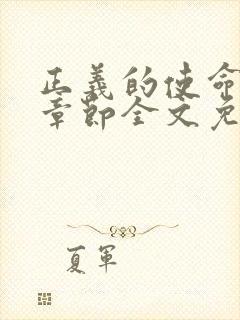 正義的使命
章節全文免
夏軍